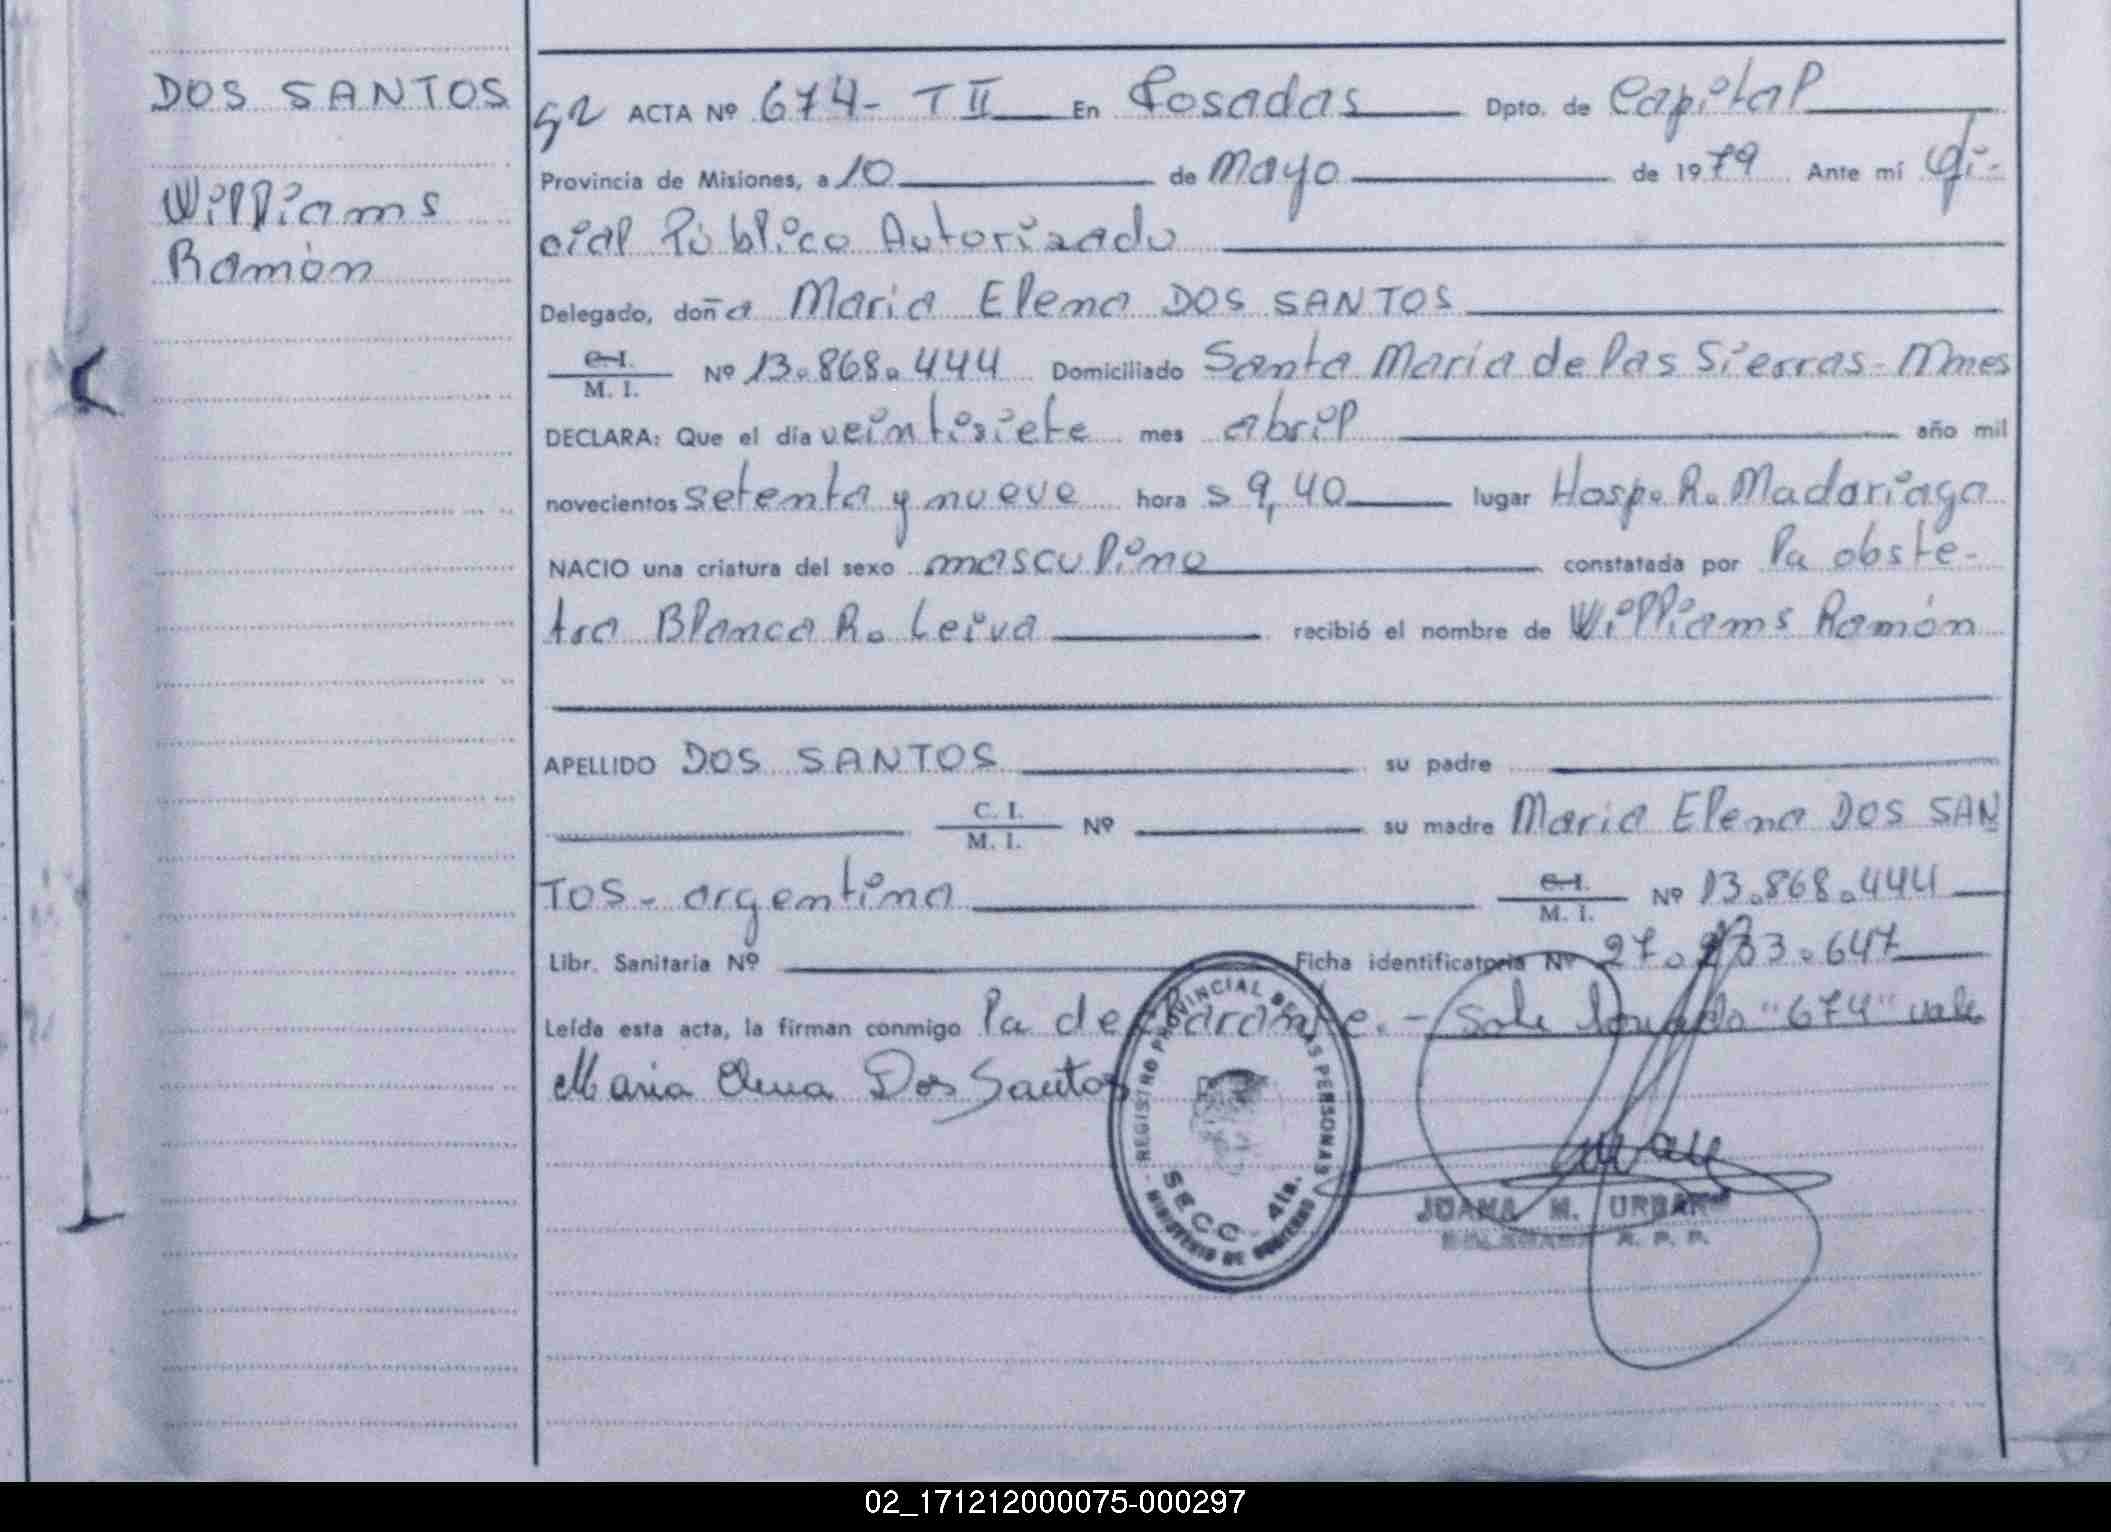 DOS SANTOS
Williams
Ramón
ACTA Nº 674- T II En Posadas Dpto. de Capital
Provincia de Misiones, a 10 de Mayo de 1979 Ante mí Ofi-
cial Público Autorizado
Delegado, doña Maria Elena DOS SANTOS
C. I.
M. I. Nº 13.868.444 Domiciliado Santa María de las Sierras - Mnes
DECLARA: Que el día veintisiete mes abril año mil
novecientos setenta y nueve hora s 9,40 lugar Hosp. R. Madariaga
NACIO una criatura del sexo masculino constatada por la obste-
tra Blanca R. Leiva recibió el nombre de Williams Ramón
APELLIDO DOS SANTOS su padre
C. I.
M. I. Nº su madre Maria Elena DOS SAN
TOS - argentina C. I.
M. I. Nº 13.868.444
Libr. Sanitaria Nº Ficha identificatoria Nº
Leída esta acta, la firman conmigo la declarante. - "674" vale
Maria Elena Dos Santos
REGISTRO PROVINCIAL DE LAS PERSONAS
SECC. 4ta.
MINISTERIO DE GOBIERNO
JOANA M. URBAN
DELEGADA R. P. P.
02_171212000075-000297